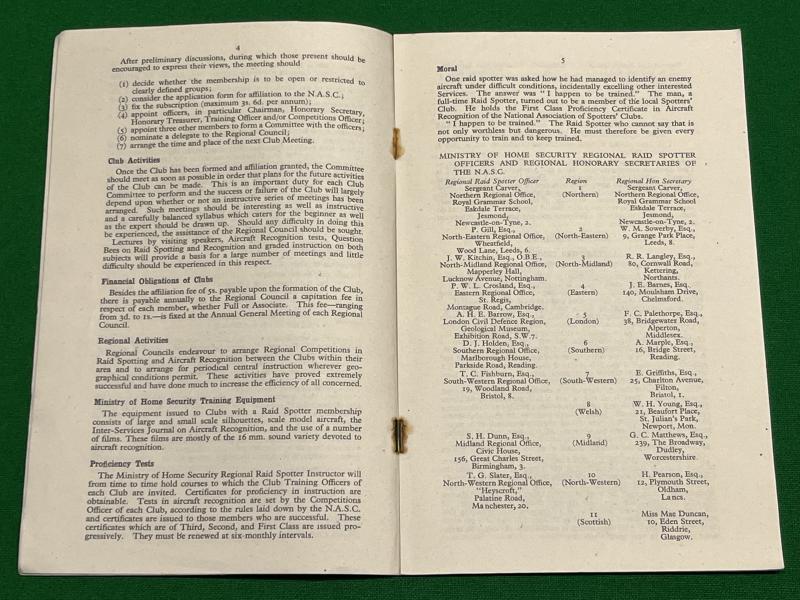 4
After preliminary discussions, during which those present should be
encouraged to express their views, the meeting should
(1) decide whether the membership is to be open or restricted to
clearly defined groups;
(2) consider the application form for affiliation to the N.A.S.C.;
(3) fix the subscription (maximum 3s. 6d. per annum);
(4) appoint officers, in particular Chairman, Honorary Secretary,
Honorary Treasurer, Training Officer and/or Competitions Officer;
(5) appoint three other members to form a Committee with the officers;
(6) nominate a delegate to the Regional Council;
(7) arrange the time and place of the next Club Meeting.
Club Activities
Once the Club has been formed and affiliation granted, the Committee
should meet as soon as possible in order that plans for the future activities
of the Club can be made. This is an important duty for each Club
Committee to perform and the success or failure of the Club will largely
depend upon whether or not an instructive series of meetings has been
arranged. Such meetings should be interesting as well as instructive
and a carefully balanced syllabus which caters for the beginner as well
as the expert should be drawn up. Should any difficulty in doing this
be experienced, the assistance of the Regional Council should be sought.
Lectures by visiting speakers, Aircraft Recognition tests, Question
Bees on Raid Spotting and Recognition and graded instruction on both
subjects will provide a basis for a large number of meetings and little
difficulty should be experienced in this respect.
Financial Obligations of Clubs
Besides the affiliation fee of 5s. payable upon the formation of the Club,
there is payable annually to the Regional Council a capitation fee in
respect of each member, whether Full or Associate. This fee—ranging
from 3d. to 1s.—is fixed at the Annual General Meeting of each Regional
Council.
Regional Activities
Regional Councils endeavour to arrange Regional Competitions in
Raid Spotting and Aircraft Recognition between the Clubs within their
area and to arrange for periodical central instruction wherever geo-
graphical conditions permit. These activities have proved extremely
successful and have done much to increase the efficiency of all concerned.
Ministry of Home Security Training Equipment
The equipment issued to Clubs with a Raid Spotter membership
consists of large and small scale silhouettes, scale model aircraft, the
Inter-Services Journal on Aircraft Recognition, and the use of a number
of films. These films are mostly of the 16 mm. sound variety devoted to
aircraft recognition.
Proficiency Tests
The Ministry of Home Security Regional Raid Spotter Instructor will
from time to time hold courses to which the Club Training Officers of
each Club are invited. Certificates for proficiency in instruction are
obtainable. Tests in aircraft recognition are set by the Competitions
Officer of each Club, according to the rules laid down by the N.A.S.C.
and certificates are issued to those members who are successful. These
certificates which are of Third, Second, and First Class are issued pro-
gressively. They must be renewed at six-monthly intervals.
5
Moral
One raid spotter was asked how he had managed to identify an enemy
aircraft under difficult conditions, incidentally excelling other interested
Services. The answer was " I happen to be trained." The man, a
full-time Raid Spotter, turned out to be a member of the local Spotters'
Club. He holds the First Class Proficiency Certificate in Aircraft
Recognition of the National Association of Spotters' Clubs.
" I happen to be trained." The Raid Spotter who cannot say that is
not only worthless but dangerous. He must therefore be given every
opportunity to train and to keep trained.
MINISTRY OF HOME SECURITY REGIONAL RAID SPOTTER
OFFICERS AND REGIONAL HONORARY SECRETARIES OF
THE N.A.S.C.
Regional Raid Spotter Officer Region Regional Hon Secretary
Sergeant Carver, 1 Sergeant Carver,
Northern Regional Office, (Northern) Northern Regional Office,
Royal Grammar School, Royal Grammar School
Eskdale Terrace, Eskdale Terrace,
Jesmond, Jesmond,
Newcastle-on-Tyne, 2. Newcastle-on-Tyne, 2.
P. Gill, Esq., 2 W. M. Sowerby, Esq.,
North-Eastern Regional Office, (North-Eastern) 9, Grange Park Place,
Wheatfield, Leeds, 8.
Wood Lane, Leeds, 6.
J. W. Kitchin, Esq., O.B.E., 3 R. R. Langley, Esq.,
North-Midland Regional Office, (North-Midland) 80, Cornwall Road,
Mapperley Hall, Kettering,
Lucknow Avenue, Nottingham. Northants.
P. W. L. Crosland, Esq., 4 J. E. Barnes, Esq.,
Eastern Regional Office, (Eastern) 140, Moulsham Drive,
St. Regis, Chelmsford.
Montague Road, Cambridge.
A. H. E. Barrow, Esq., 5 F. C. Palethorpe, Esq.,
London Civil Defence Region, (London) 38, Bridgewater Road,
Geological Museum, Alperton,
Exhibition Road, S.W.7. Middlesex.
D. J. Holden, Esq., 6 A. Marple, Esq.,
Southern Regional Office, (Southern) 16, Bridge Street,
Marlborough House, Reading.
Parkside Road, Reading.
T. C. Fishburn, Esq., 7 E. Griffiths, Esq.,
South-Western Regional Office, (South-Western) 25, Charlton Avenue,
19, Woodland Road, Filton,
Bristol, 8. Bristol, 1.
8 W. H. Young, Esq.,
(Welsh) 21, Beaufort Place,
St. Julian's Park,
Newport, Mon.
S. H. Dunn, Esq., 9 G. C. Matthews, Esq.,
Midland Regional Office, (Midland) 239, The Broadway,
Civic House, Dudley,
156, Great Charles Street, Worcestershire.
Birmingham, 3.
T. G. Slater, Esq., 10 H. Pearson, Esq.,
North-Western Regional Office, (North-Western) 12, Plymouth Street,
"Heyscroft," Oldham,
Palatine Road, Lancs.
Manchester, 20.
11 Miss Mae Duncan,
(Scottish) 10, Eden Street,
Riddrie,
Glasgow.